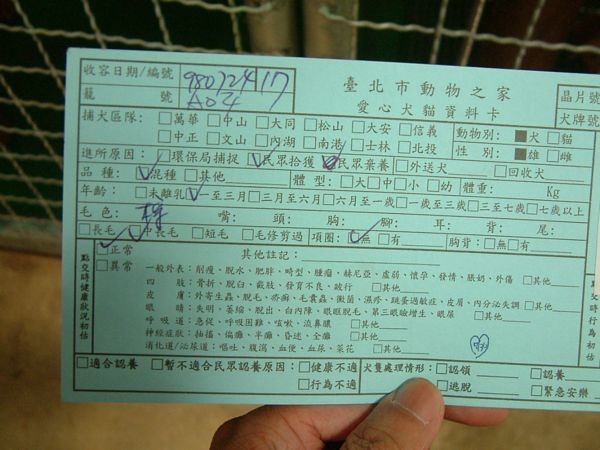 收容日期/編號 980724 17
臺北市動物之家
晶片號
籠 號 A04
愛心犬貓資料卡
犬牌號
捕犬區隊: □萬華 □中山 □大同 □松山 □大安 □信義 動物別: ■犬 □貓
□中正 □文山 □內湖 □南港 □士林 □北投 性 別: ■雄 □雌
進所原因: □環保局捕捉 □民眾拾獲 □民眾棄養 □外送犬 □回收犬
品 種: □混種 □其他 體 型: □大 □中 □小 □幼 體重: Kg
年齡: □未離乳 □一至三月 □三至六月 □六月至一歲 □一歲至三歲 □三至七歲 □七歲以上
毛 色: 嘴: 頭: 胸: 腳: 耳: 背: 尾:
□長毛 □中長毛 □短毛 □毛修剪過 項圈: □無 □有 胸背: □無 □有
點交時健康狀況初估
□正常
□異常
其他註記:
一般外表: 削瘦、脫水、肥胖、畸型、腫瘤、赫尼亞、虛弱、懷孕、發情、脹奶、外傷 □其他
四 肢: 骨折、脫臼、截肢、發育不良、跛行 □其他
皮 膚: 外寄生蟲、脫毛、疥癬、毛囊蟲、黴菌、濕疹、跳蚤過敏症、皮屑、內分泌失調 □其他
眼 睛: 失明、萎縮、脫出、白內障、眼眶脫毛、第三眼瞼增生、眼屎 □其他
呼 吸 道: 急促、呼吸困難、咳嗽、流鼻膿 □其他
神經症狀: 抽搐、偏癱、半癱、昏迷、全癱 □其他
消化道/泌尿道: 嘔吐、腹瀉、血便、血尿、菜花 □其他
□適合認養 □暫不適合民眾認養原因: □健康不適 犬隻處理情形: □認領 □認養
□行為不適 □逃脫 □緊急安樂